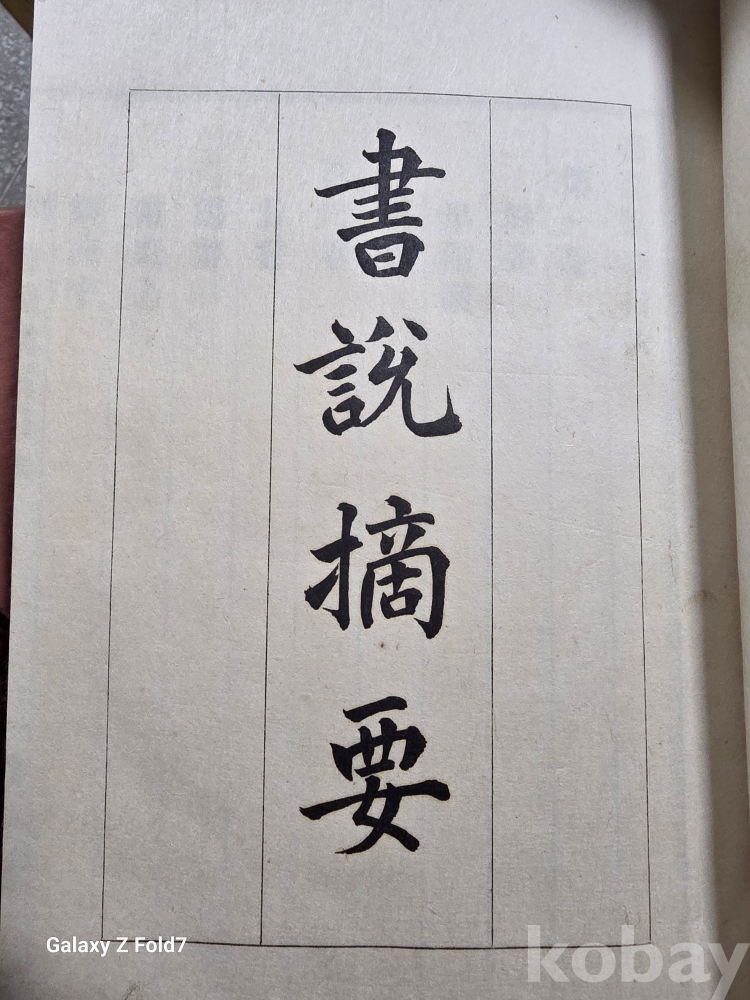 書說摘要
Galaxy Z Fold7
kobay